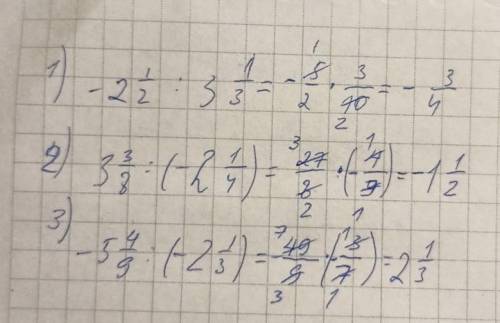 1) -2 1/2 : 3 1/3 = -5/2 · 3/10 = -3/4
2) 3 3/8 : (-2 1/4) = 27/8 · (-4/9) = -1 1/2
3) -5 4/9 : (-2 1/3) = 49/9 · (-3/7) = 2 1/3